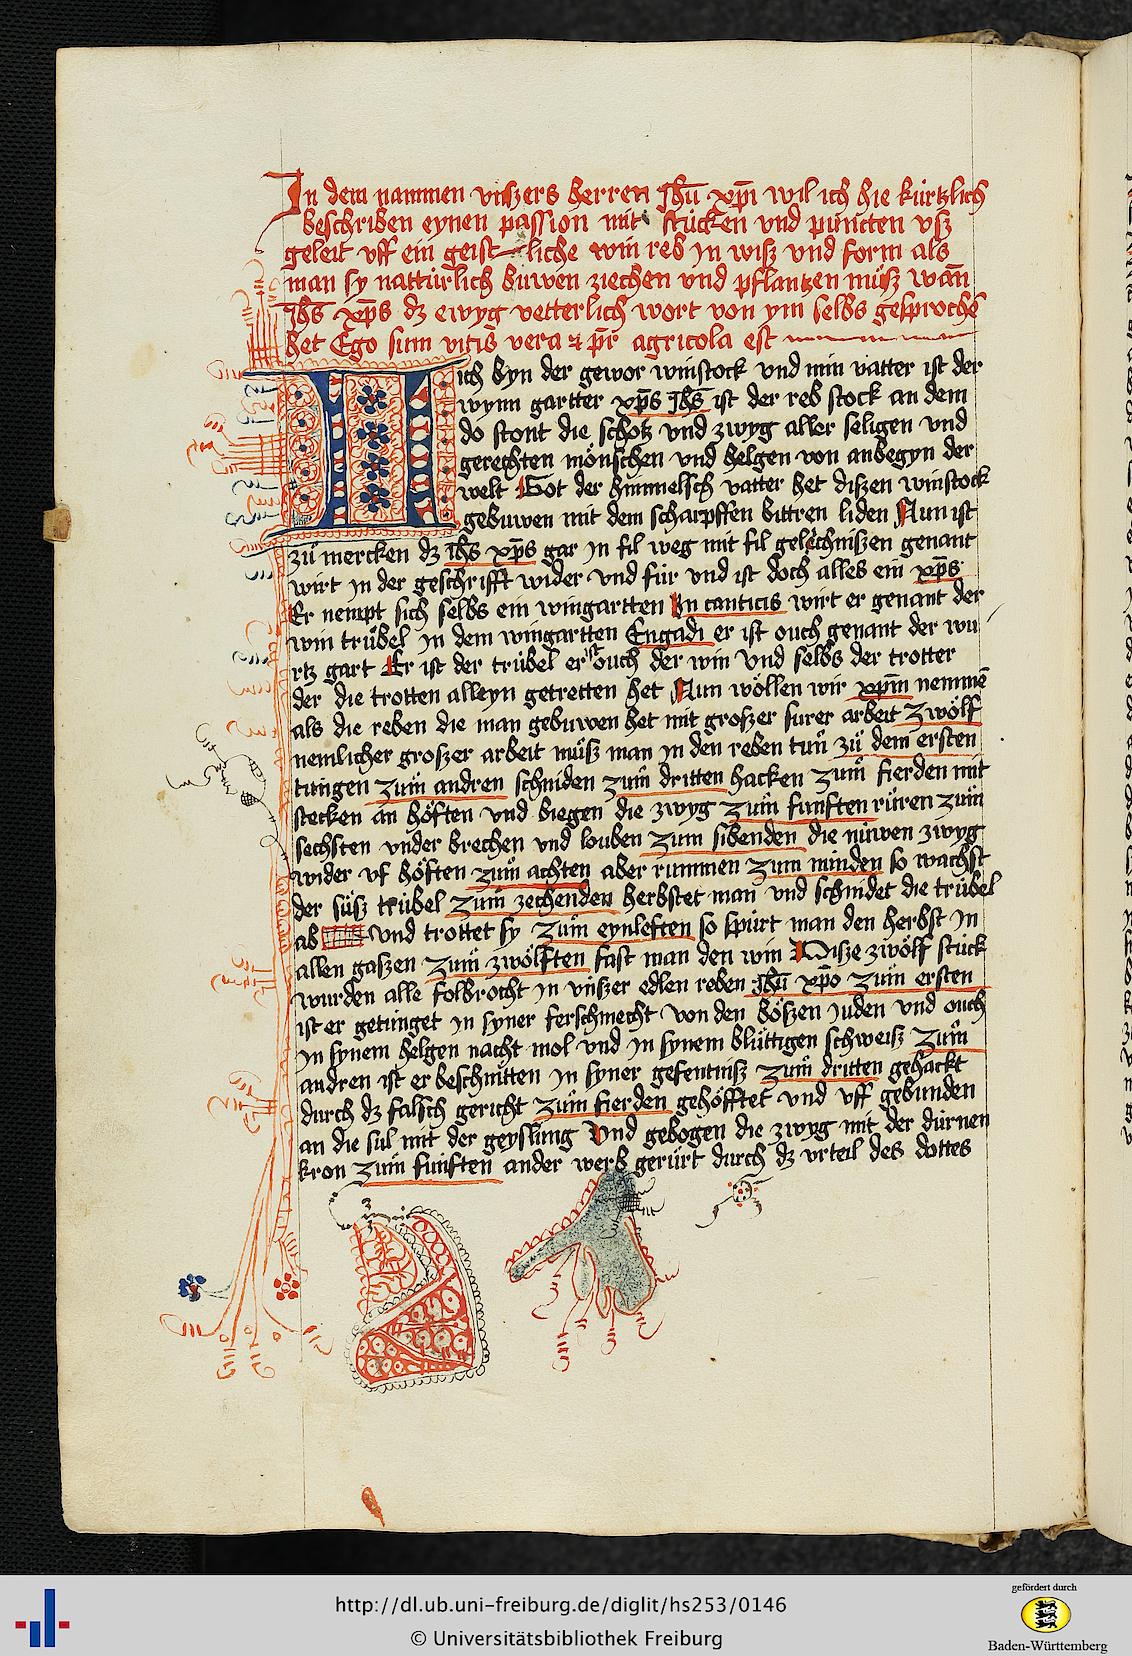 In dem nammen vnszers herren Jhu̅ xp̅i wil ich hie kürtzlich
beschriben eynen passion mit stücken vnd puncten vsz
geleit vff ein geist liche win reb jn wisz vnd form als
man sy nattürlich buwen ziechen vnd pflantzen müsz wan̅
Jh̅s xp̅s dz ewyg vetterlich wort von ym selbs gesproche̅
het Ego sum vitis vera et pr̅ agricola est
ich byn der gewor winstock vnd min vatter ist der
wynn gartter xp̅s Jh̅s ist der reb stock an dem
do stont die schosz vnd zwyg aller seligen vnd
gerechten mönschen vnd helgen von anbegyn der
welt Got der himmelsch vatter het diszen winstock
gebuwen mit dem scharpffen bittren liden Nun ist
zů mercken dz Jh̅s xp̅s gar jn fil weg mit fil gelechniszen genant
wirt jn der geschrifft wider vnd für vnd ist doch alles ein xp̅s
Er nempt sich selbs ein wingartten In canticis wirt er genant der
win trübel jn dem wingartten Engadi er ist ouch genant der wu
rtz gart Er ist der trübel er ist ouch der win vnd selbs der trotter
der die trotten alleyn getretten het Nun wöllen wir xpm̅ nemme̅
als die reben die man gebuwen het mit groszer surer arbeit Zwölf
nemlicher groszer arbeit müsz man jn den reben tun zů dem ersten
tungen zum andren schniden zum dritten hacken zum fierden mit
stecken an höften vnd biegen die zwyg zum funften rüren zum
sechsten vnder brechen vnd louben zum sibenden die nüwen zwyg
wider vf höften zum achten aber rummen zum nünden so wachst
der süsz trübel zum zechenden herbstet man vnd schnidet die trübel
ab vnd trottet sy zum eynleften so spürt man den herbst jn
allen gaszen zum zwölften fast man den win Disze zwölf stück
wurden alle folbrocht jn vnszer edlen reben Jhu̅ xp̅o zum ersten
ist er getünget jn syner ferschmecht von den böszen juden vnd ouch
jn synem helgen nacht mol vnd jn synem blüttigen schweisz zum
andren ist er beschnitten jn syner gefentnisz zum dritten gehackt
durch dz falsch gericht zum fierden gehöfftet vnd vff gebunden
an die sul mit der geyslung Vnd gebogen die zwyg mit der dürnen
kron zum funften ander werb gerürt durch dz vrteil des dottes
http://dl.ub.uni-freiburg.de/diglit/hs253/0146
© Universitätsbibliothek Freiburg
gefördert durch
Baden-Württemberg